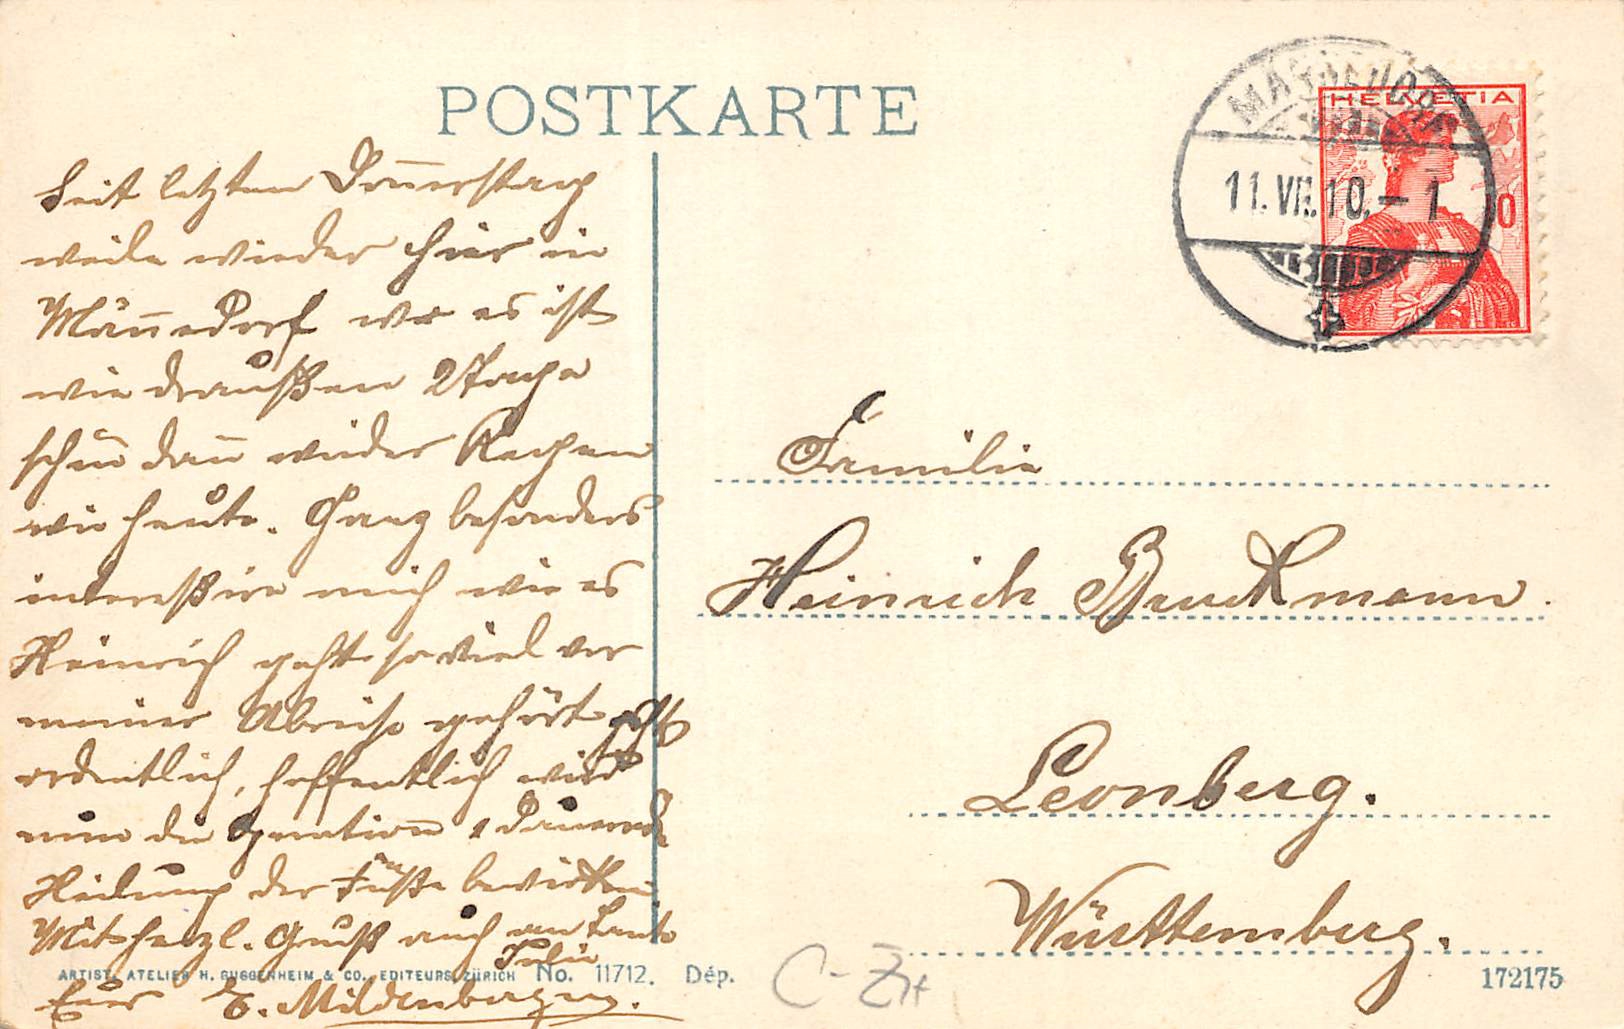 POSTKARTE
HELVETIA
11. VII. 10. – 1
Seit letzten Donnerstag
weile wieder hier in
Männedorf wo es ist
wie draußen 2 Tage
schön dann wieder Regen
wie heute. Ganz besonders
intereßire mich wie es
Heinrich geht so viel vor
meiner Abreise gehört
ordentlich, hoffentlich wird
nun die Operation dauernde
Heilung der Füße bewirken
Mit herzl. Gruß auch an Tante
Julie
Euer E. Mildenberger.
ARTIST. ATELIER H. GUGGENHEIM & CO., EDITEURS, ZÜRICH No. 11712. Dép.
Familie
Heinrich Bruckmann.
Leonberg.
Württemberg.
C-ZH
172175